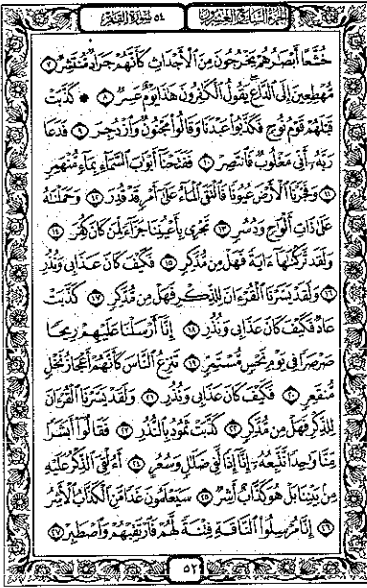 الجزء السابع والعشرون ٥٤ سورة القمر
خُشَّعًا أَبْصَٰرُهُمْ يَخْرُجُونَ مِنَ ٱلْأَجْدَاثِ كَأَنَّهُمْ جَرَادٌ مُّنتَشِرٌ ٧
مُّهْطِعِينَ إِلَى ٱلدَّاعِ يَقُولُ ٱلْكَٰفِرُونَ هَٰذَا يَوْمٌ عَسِرٌ ٨ * كَذَّبَتْ
قَبْلَهُمْ قَوْمُ نُوحٍ فَكَذَّبُوا۟ عَبْدَنَا وَقَالُوا۟ مَجْنُونٌ وَٱزْدُجِرَ ٩ فَدَعَا
رَبَّهُۥٓ أَنِّى مَغْلُوبٌ فَٱنتَصِرْ ١٠ فَفَتَحْنَآ أَبْوَٰبَ ٱلسَّمَآءِ بِمَآءٍ مُّنْهَمِرٍ
١١ وَفَجَّرْنَا ٱلْأَرْضَ عُيُونًا فَٱلْتَقَى ٱلْمَآءُ عَلَىٰٓ أَمْرٍ قَدْ قُدِرَ ١٢ وَحَمَلْنَٰهُ
عَلَىٰ ذَاتِ أَلْوَٰحٍ وَدُسُرٍ ١٣ تَجْرِى بِأَعْيُنِنَا جَزَآءً لِّمَن كَانَ كُفِرَ ١٤
وَلَقَد تَّرَكْنَٰهَآ ءَايَةً فَهَلْ مِن مُّدَّكِرٍ ١٥ فَكَيْفَ كَانَ عَذَابِى وَنُذُرِ
١٦ وَلَقَدْ يَسَّرْنَا ٱلْقُرْءَانَ لِلذِّكْرِ فَهَلْ مِن مُّدَّكِرٍ ١٧ كَذَّبَتْ
عَادٌ فَكَيْفَ كَانَ عَذَابِى وَنُذُرِ ١٨ إِنَّآ أَرْسَلْنَا عَلَيْهِمْ رِيحًا
صَرْصَرًا فِى يَوْمِ نَحْسٍ مُّسْتَمِرٍّ ١٩ تَنزِعُ ٱلنَّاسَ كَأَنَّهُمْ أَعْجَازُ نَخْلٍ
مُّنقَعِرٍ ٢٠ فَكَيْفَ كَانَ عَذَابِى وَنُذُرِ ٢١ وَلَقَدْ يَسَّرْنَا ٱلْقُرْءَانَ
لِلذِّكْرِ فَهَلْ مِن مُّدَّكِرٍ ٢٢ كَذَّبَتْ ثَمُودُ بِٱلنُّذُرِ ٢٣ فَقَالُوٓا۟ أَبَشَرًا
مِّنَّا وَٰحِدًا نَّتَّبِعُهُۥٓ إِنَّآ إِذًا لَّفِى ضَلَٰلٍ وَسُعُرٍ ٢٤ أَءُلْقِىَ ٱلذِّكْرُ عَلَيْهِ
مِنۢ بَيْنِنَا بَلْ هُوَ كَذَّابٌ أَشِرٌ ٢٥ سَيَعْلَمُونَ غَدًا مَّنِ ٱلْكَذَّابُ ٱلْأَشِرُ
٢٦ إِنَّا مُرْسِلُوا۟ ٱلنَّاقَةِ فِتْنَةً لَّهُمْ فَٱرْتَقِبْهُمْ وَٱصْطَبِرْ ٢٧